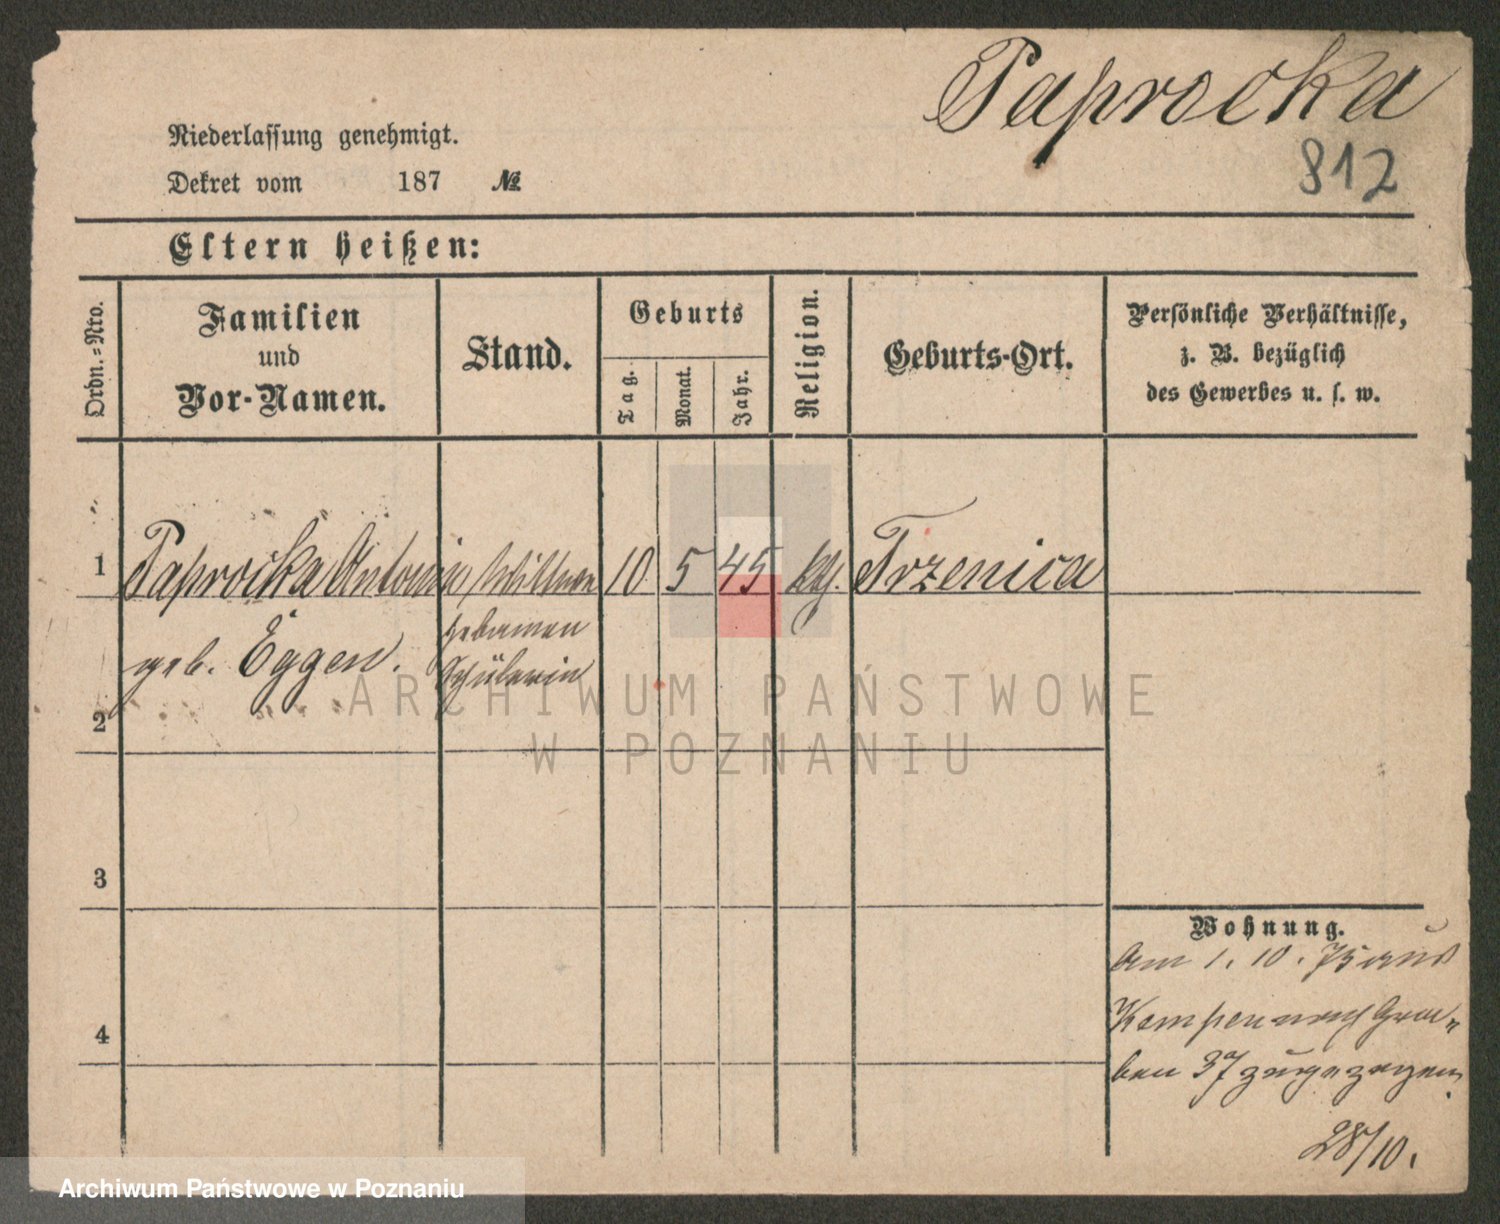 Paprocka
812
Niederlassung genehmigt.
Dekret vom 187 №
Eltern heißen:
Ordn.=Nro.
Familien
und
Vor-Namen.
Stand.
Geburts
Tag.
Monat.
Jahr.
Religion.
Geburts-Ort.
Persönliche Verhältnisse,
z. B. bezüglich
des Gewerbes u. s. w.
1 Paprocka Antonin Wittwe 10 5 45 kth. Trzenica
geb. Eggen.
Hebamen
Schülerin
2
3
4
Wohnung.
Am 1. 10. 75 aus
Kempen nach Gra-
ben 37 zugezogen.
28/10.
ARCHIWUM PAŃSTWOWE
W POZNANIU
Archiwum Państwowe w Poznaniu